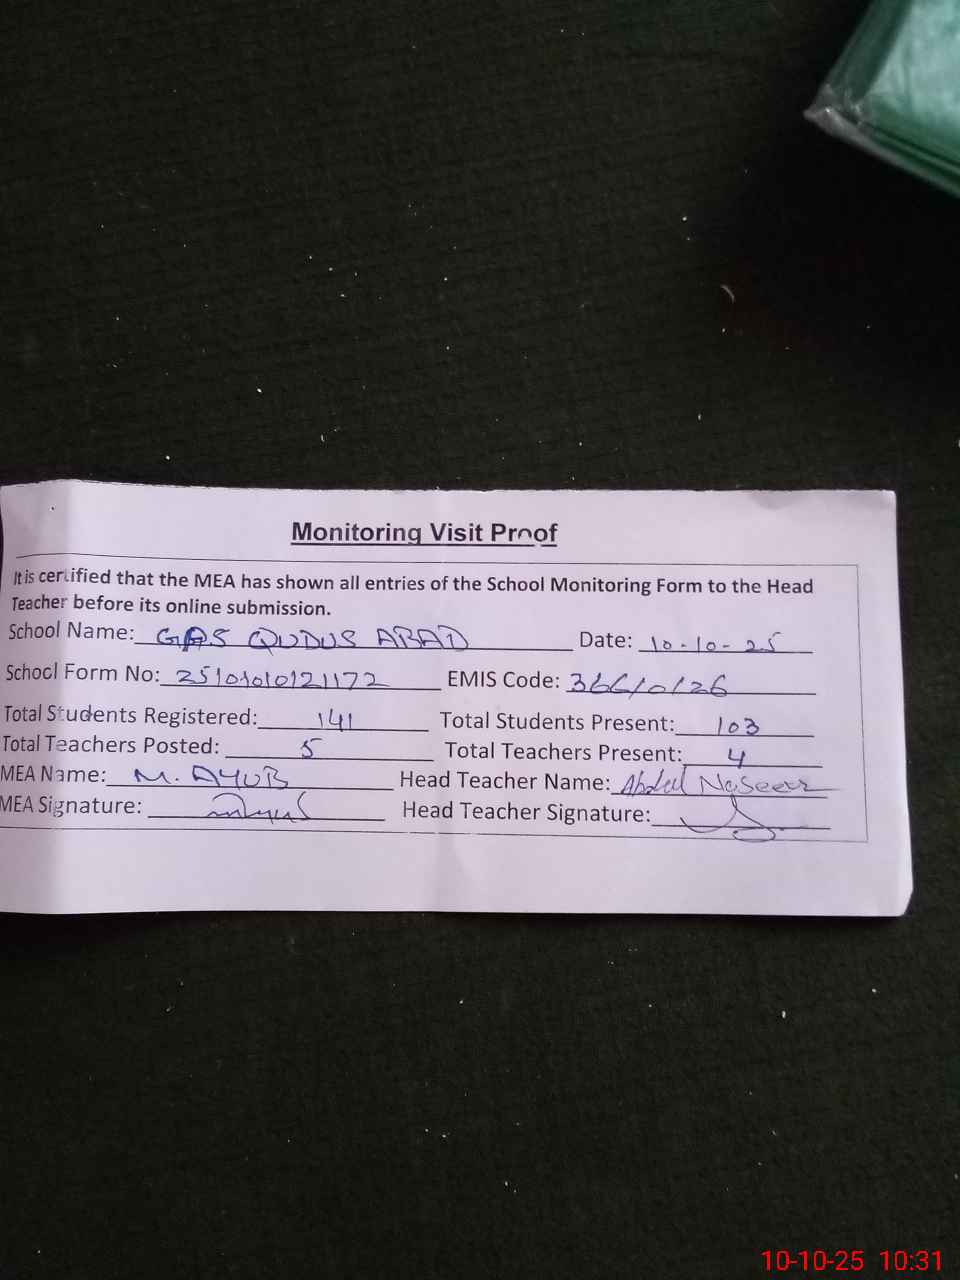 Monitoring Visit Proof
It is certified that the MEA has shown all entries of the School Monitoring Form to the Head
Teacher before its online submission.
School Name: GPS QUDUS ABAD Date: 10-10-25
School Form No: 25101010121172 EMIS Code: 36610126
Total Students Registered: 141 Total Students Present: 103
Total Teachers Posted: 5 Total Teachers Present: 4
MEA Name: M. AYUB Head Teacher Name: Abdul Naseer
MEA Signature: Head Teacher Signature:
10-10-25 10:31